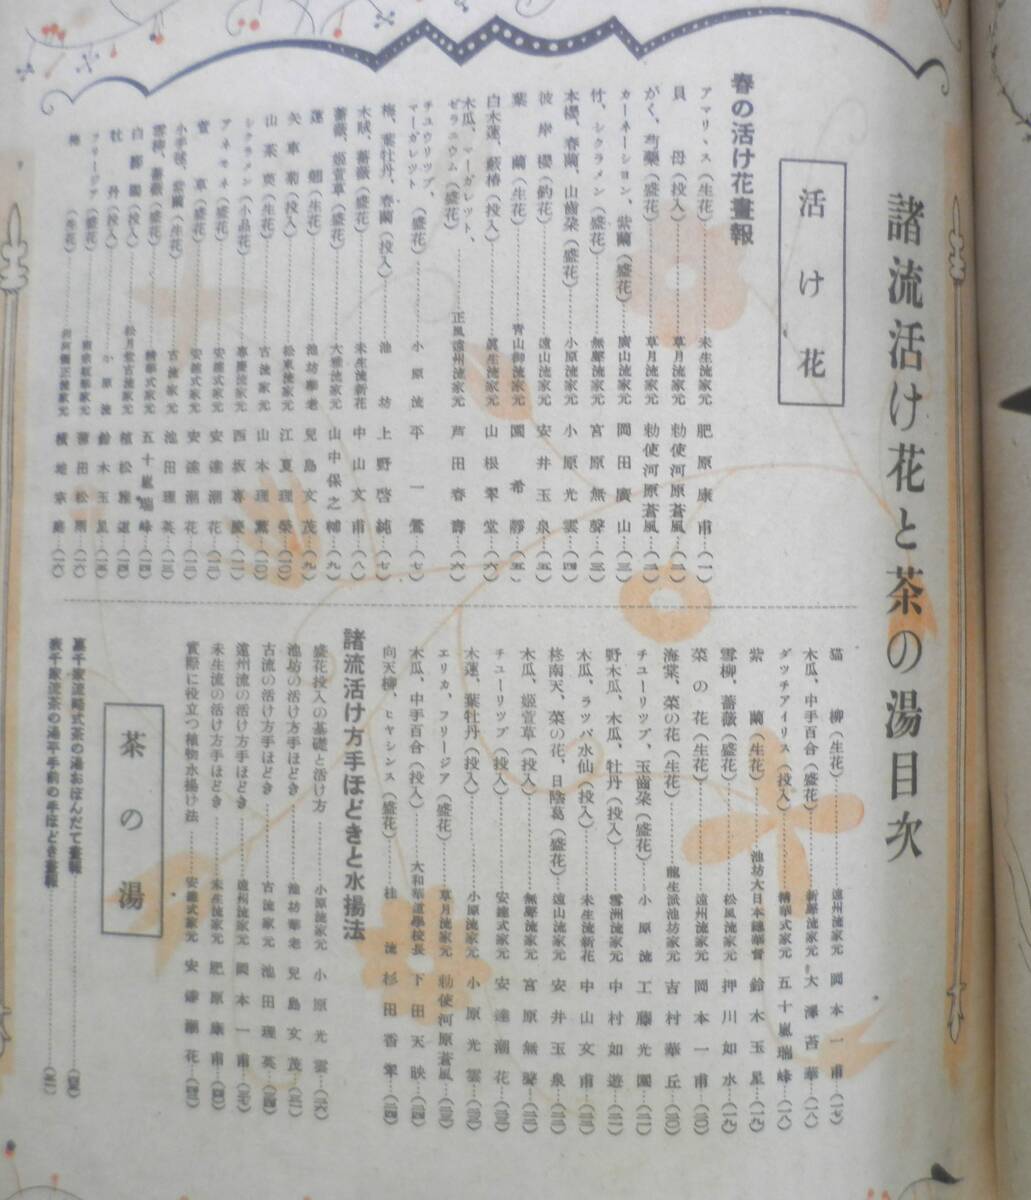 諸流活け花と茶の湯目次
活け花
春の活け花畫報
アマリヽス(生花)……未生流家元 肥原康甫…(一)
貝母(投入)……草月流家元 勅使河原蒼風…(二)
がく、芍藥(盛花)……草月流家元 勅使河原蒼風…(二)
カーネーシヨン、紫蘭(盛花) 廣山流家元 岡田廣山…(三)
竹、シクラメン(盛花)……無壓流家元 宮原無聲…(三)
本櫻、春蘭、山齒朶(盛花)……小原流家元 小原光雲…(四)
彼岸櫻(釣花)……遠山流家元 安井玉泉…(五)
葉蘭(生花)……青山御流家元 園希靜…(五)
白木蓮、藪椿(投入)……眞生流家元 山根翠堂…(六)
木瓜、マーガレツト、ゼラニウム(盛花)……正風遠州流家元 芦田春壽…(六)
チユウリツプ、マーガレツト(盛花)……小原流 平一鶯…(七)
梅、葉牡丹、春蘭(投入)……池坊 上野啓純…(七)
木賊、薔薇(盛花)……未生流新花 中山文甫…(八)
薔薇、姫萱草(盛花)……大雅流家元 山中保之輔…(九)
蓮翹(生花)……池坊華老 兒島文茂…(九)
矢車菊(投入)……松東流家元 江夏理榮…(一〇)
山茱萸(生花)……古流家元 山本理薫…(一〇)
シクラメン(小品花)……專慶流家元 西坂專慶…(一一)
アネモネ(盛花)……安達式家元 安達潮花…(一二)
萱草(盛花)……安達式家元 安達潮花…(一二)
小手毬、紫蘭(生花)……古流家元 池田理英…(一三)
雪柳、薔薇(盛花)……精華式家元 五十嵐瑞峰…(一四)
松月堂古流家元 植松雅道…(一四)
牡丹(投入)……小原流 鈴木玉星…(一五)
フリージア(盛花)
猫柳(生花)……遠州流家元 岡本一甫…(一七)
木瓜、中手百合(盛花)……大澤苔華…(一八)
ダツチアイリス(投入)……精華式家元 五十嵐瑞峰…(一八)
紫蘭(生花)……池坊大日本總華督 鈴木玉星…(一九)
雪柳、薔薇(盛花)……松風流家元 押川如水…(一九)
菜の花(生花)……遠州流家元 岡本一甫…(二〇)
海棠、菜の花(生花)……龍生派池坊家元 吉村華丘…(二〇)
チユーリツプ、玉齒朶(盛花)…小原流 工藤光園…(二一)
野木瓜、木瓜、牡丹(投入)……雪洲流家元 中村如遊…(二一)
木瓜、ラツパ水仙(投入)……未生流新花 中山文甫…(二二)
柊南天、菜の花、日陰葛(盛花)…遠山流家元 安井玉泉…(二二)
木瓜、姫萱草(投入)……無壓流家元 宮原無聲…(二三)
チユーリツプ(投入)……安達式家元 安達潮花…(二三)
木蓮、葉牡丹(投入)……小原流家元 小原光雲…(二三)
エリカ、フリージア(盛花)……草月流家元 勅使河原蒼風…(二三)
木瓜、中手百合(投入)……大和華道學校長 下田天映…(二四)
向天柳、ヒヤシンス(盛花)……桂流 杉田香翠…(二四)
諸流活け方手ほどきと水揚法
盛花投入の基礎と活け方……小原流家元 小原光雲…(二六)
池坊の活け方手ほどき……池坊華老 兒島文茂…(三一)
古流の活け方手ほどき……古流家元 池田理英…(三四)
遠州流の活け方手ほどき……遠州流家元 岡本一甫…(三七)
未生流の活け方手ほどき……未生流家元 肥原康甫…(四〇)
實際に役立つ植物水揚げ法……安達式家元 安達潮花…(四三)
茶の湯
裏千家流略式茶の湯おぼんだて畫報
表千家流茶の湯平手前の手ほどき畫報